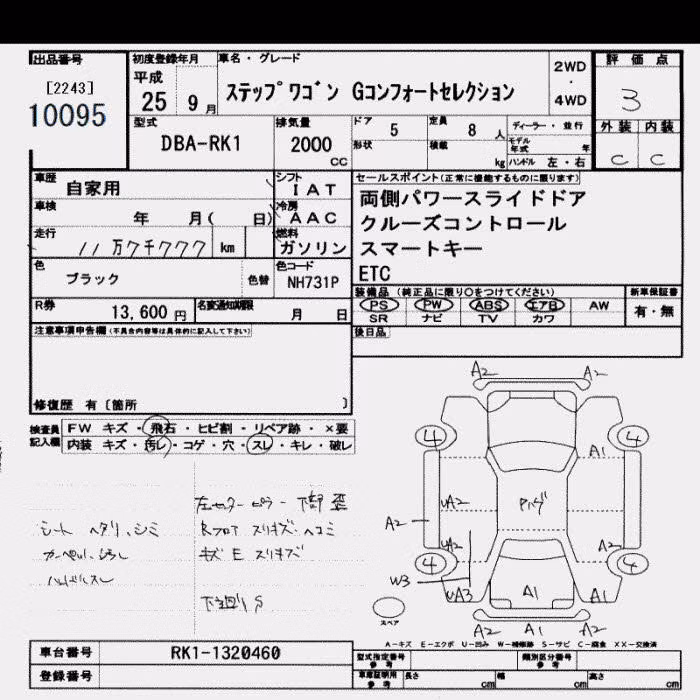 出品番号
[2243]
10095
初度登録年月
平成
25 9月
車名・グレード
ステップワゴン Gコンフォートセレクション
2WD
・
4WD
評価点
3
外装 内装
C C
型式
DBA-RK1
排気量
2000
CC
ドア
5
形状
定員
8 人
積載
kg
ディーラー・並行
モデル年式 年
ハンドル 左・右
車歴
自家用
シフト
IAT
車検
年 月( 日)
冷房
AAC
走行
11万7千777 km
燃料
ガソリン
色
ブラック
色替
色コード
NH731P
R券
13,600円
名変通知期限
月 日
セールスポイント(正常に機能するものに限ります)
両側パワースライドドア
クルーズコントロール
スマートキー
ETC
装備品(純正品に限り○をつけてください)
PS PW ABS エアB AW
SR ナビ TV カワ
新車保証書
有・無
後日品
注意事項申告欄(不具合内容等は具体的に記入して下さい)
修復歴 有〔箇所 〕
検査員
記入欄
FW キズ・飛石・ヒビ割・リペア跡・×要
内装 キズ・汚レ・コゲ・穴・スレ・キレ・破レ
左センターピラー下部 歪
シート ヘタリ、シミ
Rフロア スリキズ・ヘコミ
キズ E スリキズ
ハンドルスレ
下廻りS
A2 A2
4 4
A1
UA2
Pハゲ
A2
UA2
A2
4 4
W3
UA3
A1
スペア
A2 A1 A2
A-キズ E-エクボ U-凹み W-補修跡 S-サビ C-腐食 XX-交換済
車台番号
RK1-1320460
登録番号
型式指定番号
参考
類別区分番号
参考
車庫証明用
参考
長さ cm
幅 cm
高さ cm